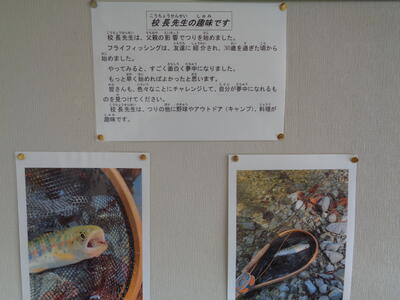 校長先生の趣味です
校長先生は、父親の影響でつりを始めました。
フライフィッシングは、友達に紹介され、30歳を過ぎた頃から
始めました。
やってみると、すごく面白く夢中になりました。
もっと早く始めればよかったと思います。
皆さんも、色々なことにチャレンジして、自分が夢中になれるも
のを見つけてください。
校長先生は、つりの他に野球やアウトドア（キャンプ）、料理が
趣味です。